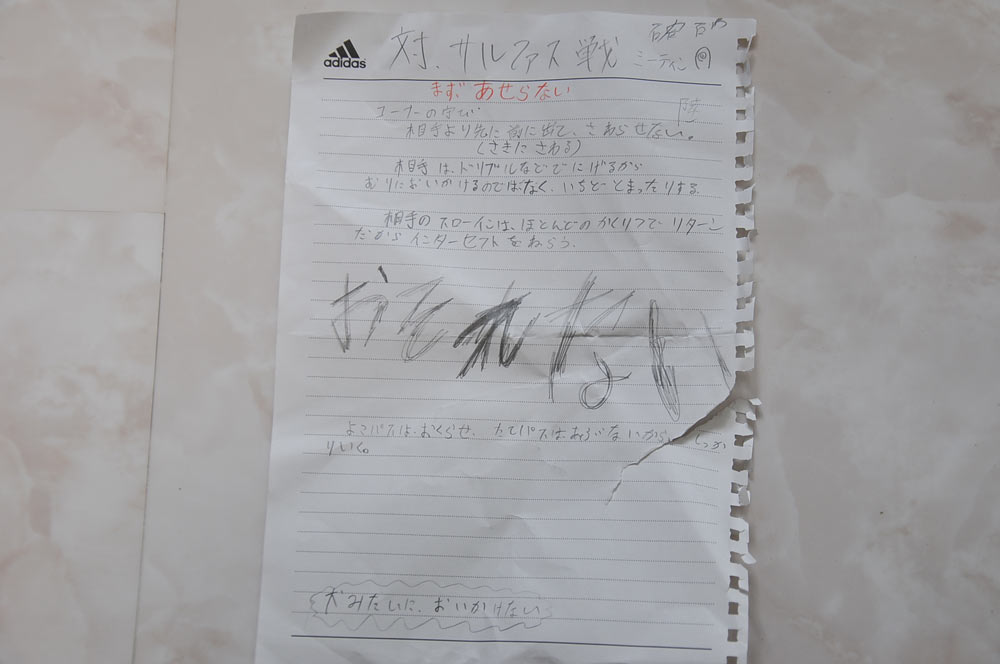 adidas
対.サルファス戦
ミーティン
まずあせらない
コーナーの守び
相手より先に前に出て、さわらせない。
(さきにさわる)
相手は、ドリブルなどでにげるから
むりにおいかけるのではなく、いちどとまったりする
相手のスローインは、ほとんどのかくりつでリターン
だからインターセフトをねらう.
おそれない
よこパスは.おくらせ、たてパスはあぶないから、しっか
りいく。
犬みたいに、おいかけない